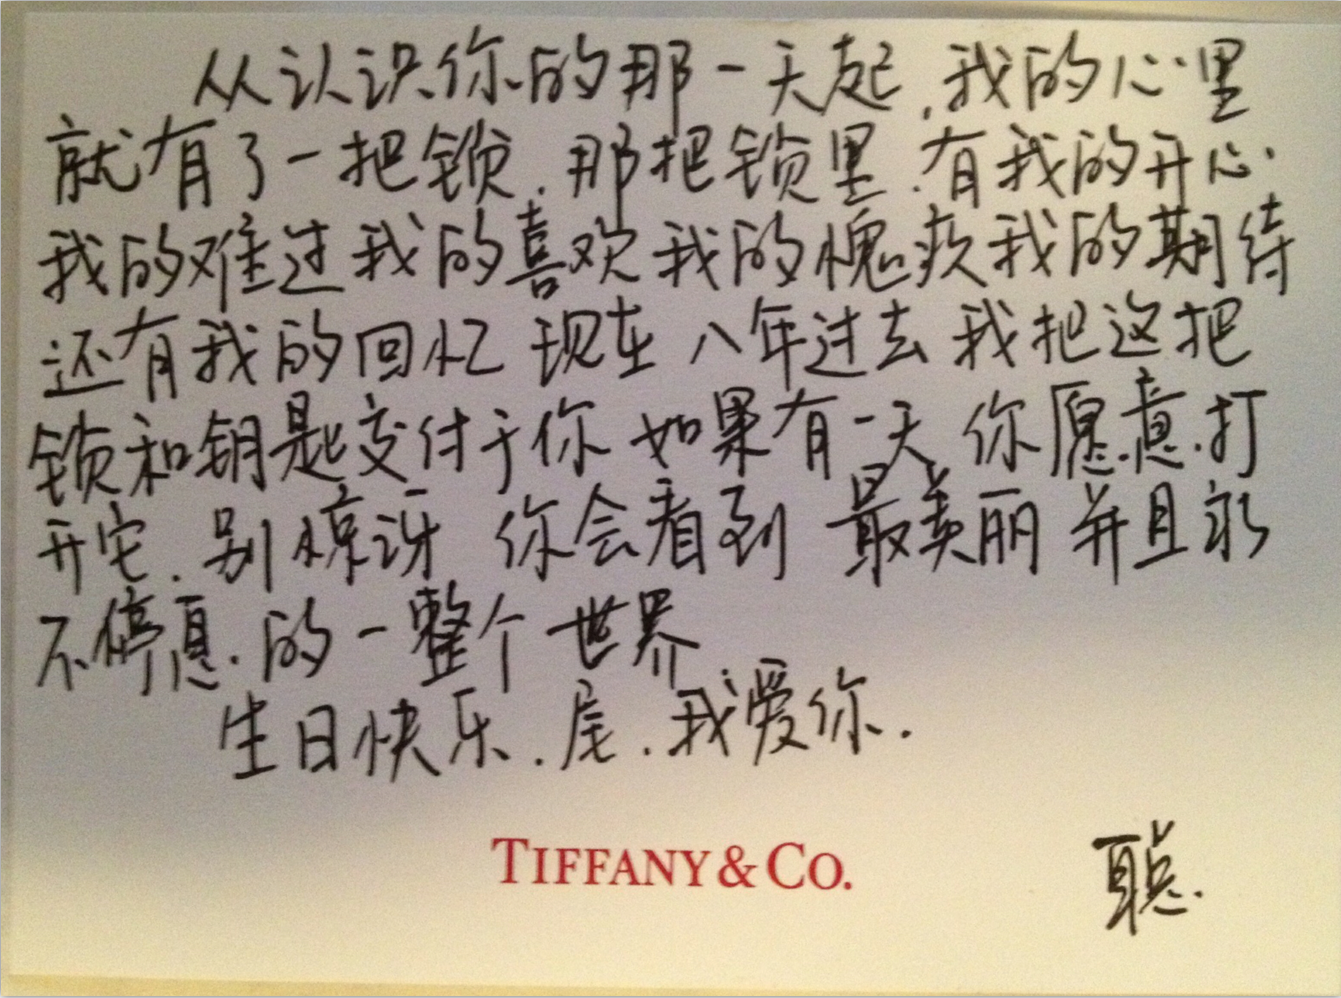 从认识你的那一天起,我的心里
就有了一把锁.那把锁里.有我的开心
我的难过我的喜欢我的愧疚我的期待
还有我的回忆 现在 八年过去 我把这把
锁和钥匙交付于你 如果有一天 你愿意打
开它.别惊讶 你会看到 最美丽 并且永
不停息.的一整个世界
生日快乐.尾.我爱你.
TIFFANY & CO.
聪.